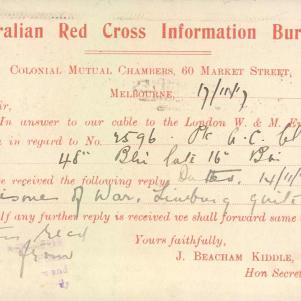 ralian Red Cross Information Bur
COLONIAL MUTUAL CHAMBERS, 60 MARKET STREET,
MELBOURNE, 17/11/17
ir,
In answer to our cable to the London W. & M. E
in regard to No. 2596 Pte A. C.
48th Bn late 16th Bn
e received the following reply 14/11/
isoner of War, Limburg quite
If any further report is received we shall forward same
Yours faithfully,
J. BEACHAM KIDDLE,
Hon Secre